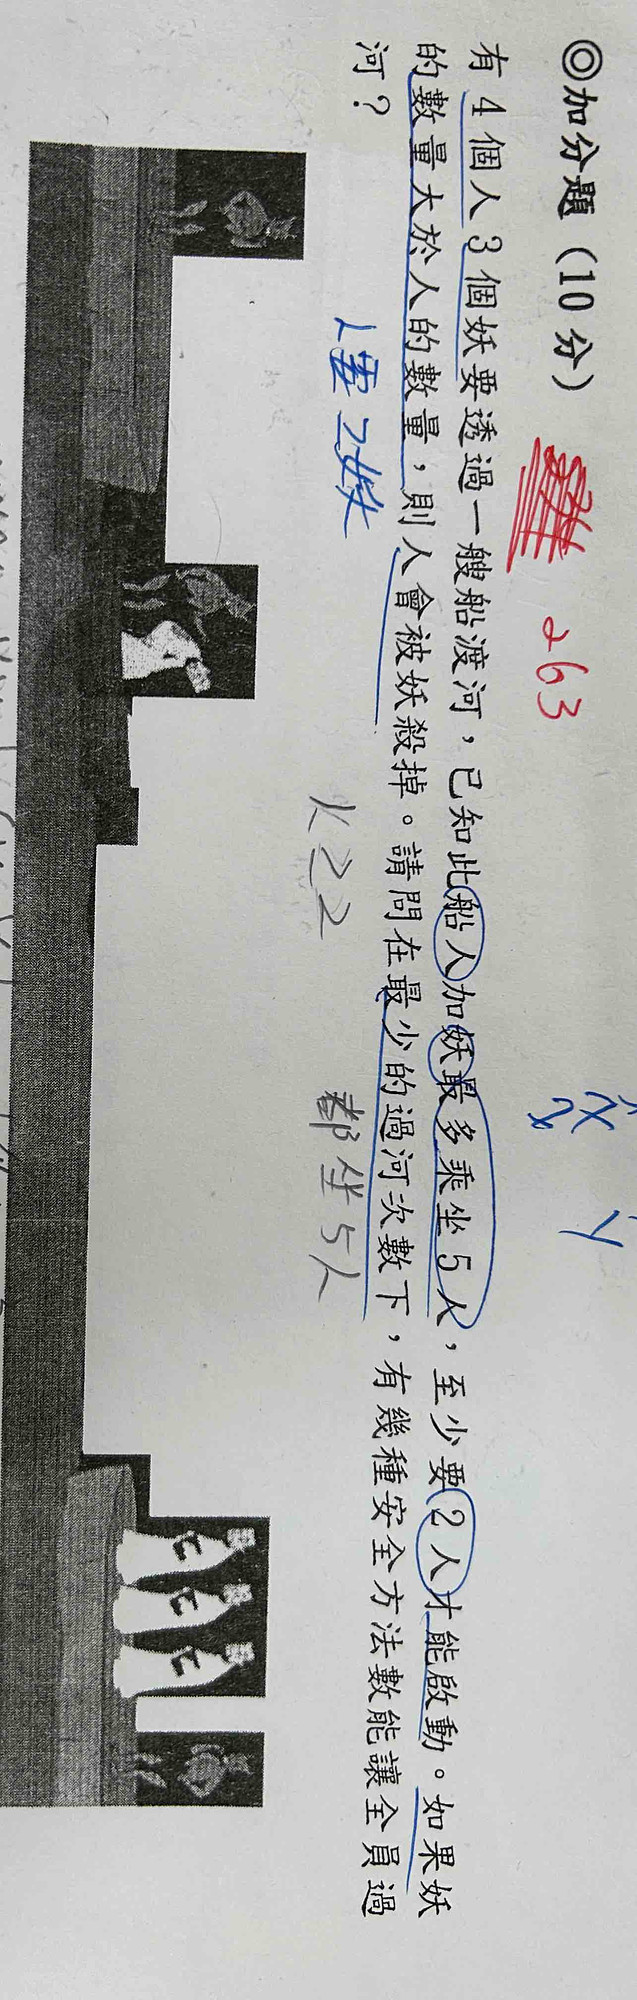 ◎加分題（10 分）
難 263
有 4 個人 3 個妖要透過一艘船渡河，已知此船人加妖最多乘坐 5 人，至少要 2 人才能啟動。如果妖
的數量大於人的數量，則人會被妖殺掉。請問在最少的過河次數下，有幾種安全方法數能讓全員過
河？
人≥2
都坐5人
y